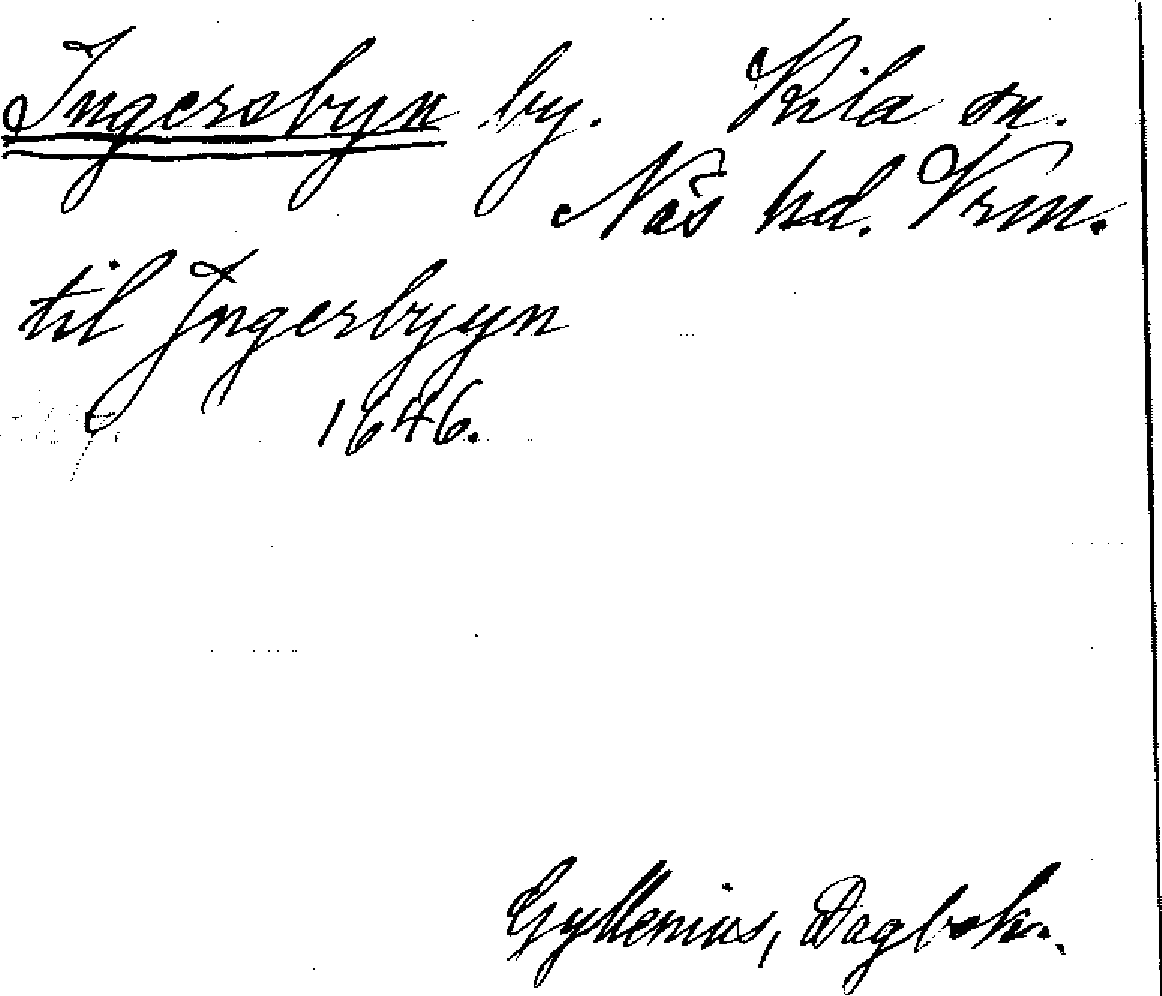 Ingersbyn by. Kila sn.
Näs hd. Vrm.
til Ingerbyyn
1646.
Gyllenius, Dagbok.